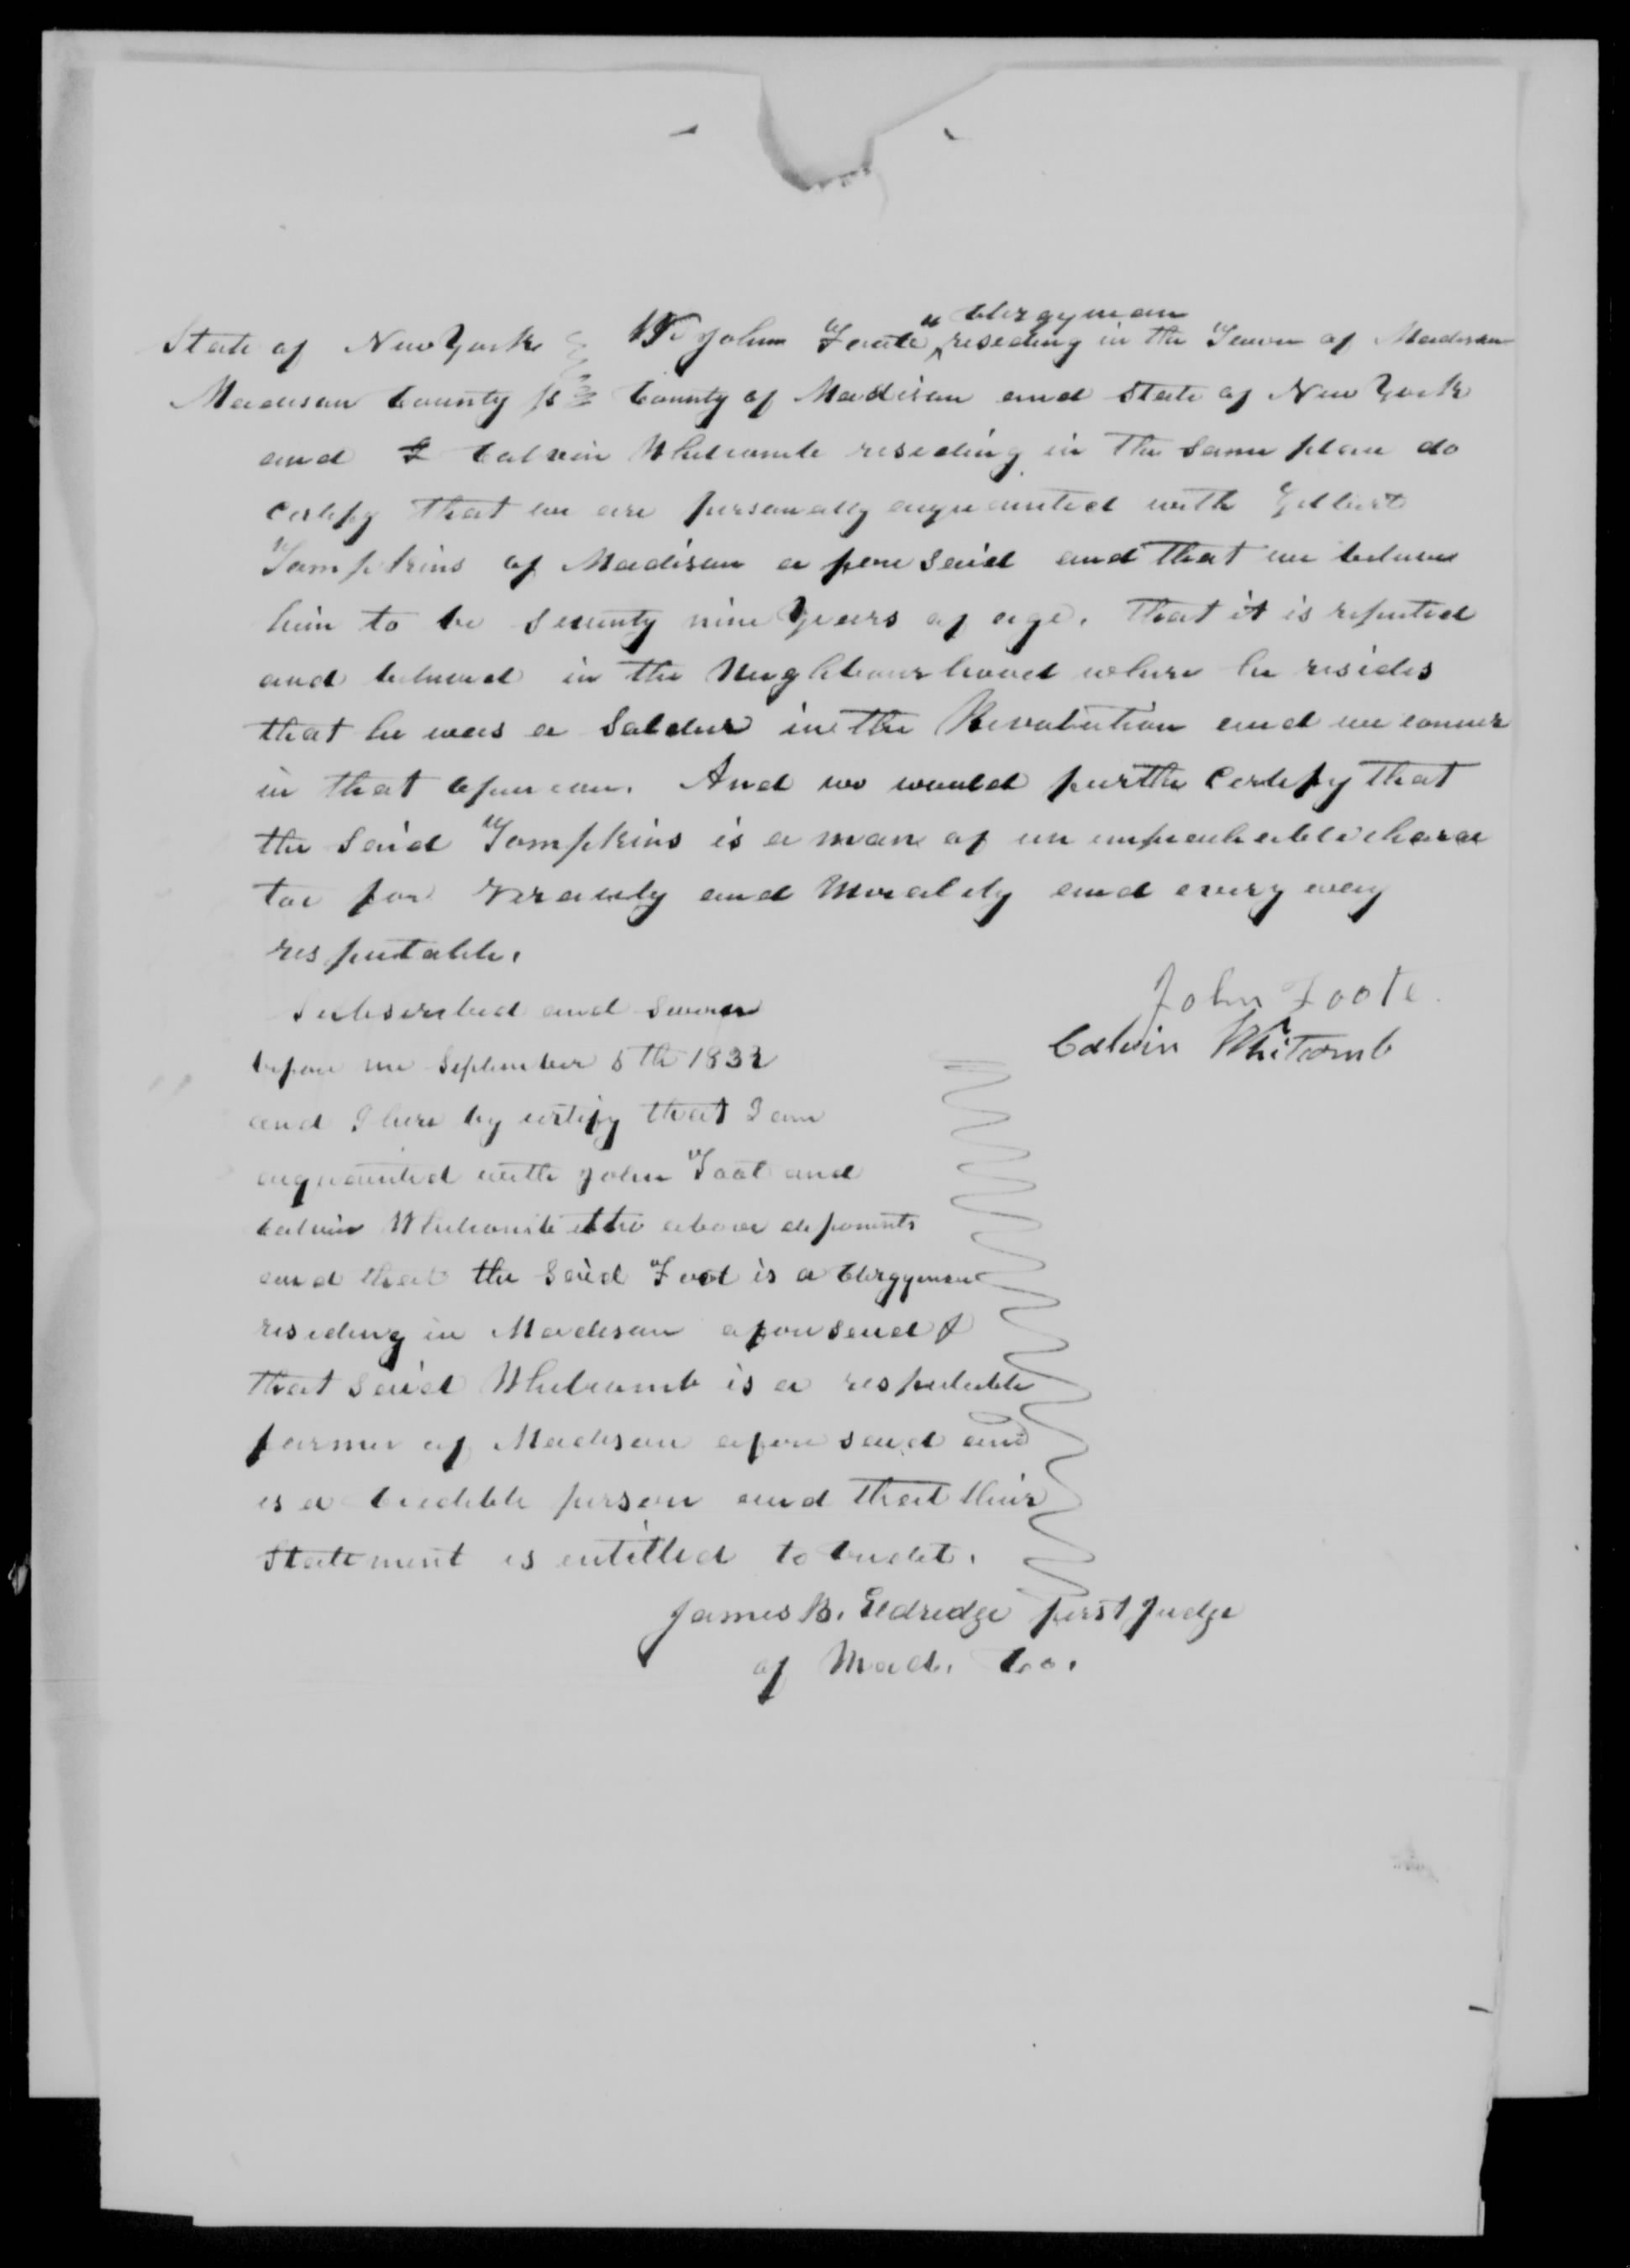 a Clergyman
State of New York We John Foote residing in the Town of Madison
Madison County ss County of Madison and State of New York
and I Calvin Whitcomb residing in the same place do
certify that we are personally acquainted with Gilbert
Tompkins of Madison afore said and that we believe
him to be seventy nine years of age. That it is reputed
and believed in the Neighbourhood where he resides
that he was a Soldier in the Revolution and we concur
in that opinion. And we would further Certify that
the said Tompkins is a man of unimpeachable charac
ter for veracity and Morality and every way
respectable.
John Foote
Calvin Whitcomb
Subscribed and Sworn
before me September 5th 1832
and I here by certify that I am
acquainted with John Foot and
Calvin Whitcomb the above deponents
and that the said Foot is a Clergyman
residing in Madison aforesaid &
that said Whitcomb is a respectable
farmer of Madison afore said and
is a credible person and that their
statement is entitled to credit.
James B. Eldredge first Judge
of Mad. Co.